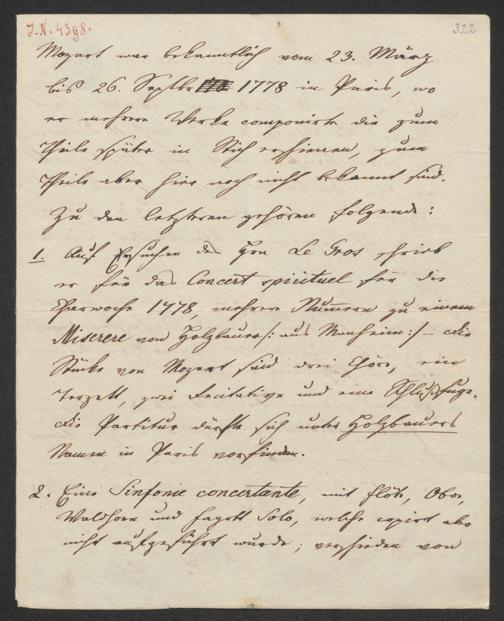 J.N. 4398.
322
Mozart war bekanntlich vom 23. März
bis 26. Septbr 1778 in Paris, wo
er mehrere Werke componirte die zum
Theile später im Stich erschienen, zum
Theile aber hier noch nicht bekannt sind.
Zu den letzteren gehören folgende:
1. Auf Ersuchen des Hrn Le Gros schrieb
er für das Concert spirituel für die
Charwoche 1778, mehrere Numern zu einem
Miserere von Holzbauer /: aus Manheim :/ – die
Stücke von Mozart sind drei Chöre, ein
Terzett, zwei Recitative und eine Schlußfuge.
Die Partitur dürfte sich unter Holzbauers
Namen in Paris vorfinden.
2. Eine Sinfonie concertante, mit Flöte, Oboe,
Waldhorn und Fagott Solo, welche copirt aber
nicht aufgeführt wurde; verschieden von